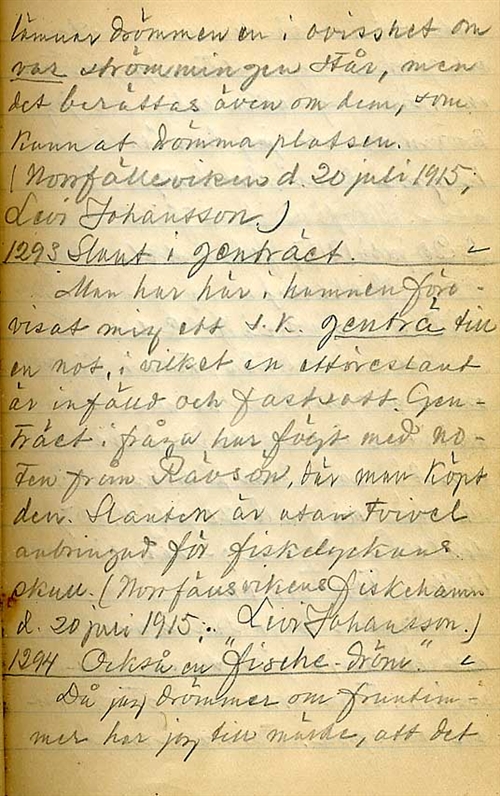 lämnar drömmen en i ovisshet om
var strömmingen står, men
det berättas även om dem, som
kunnat drömma platsen.
(Norrfälleviken d. 20 juli 1915;
Levi Johansson.)
1293 Slant i genträet.
Man har här i hamnen före-
visat mig ett s.k. genträ till
en not, i vilket en ettöreslant
är infälld och fastsatt. Gen-
träet i fråga har följt med no-
ten från Rävsön, där man köpt
den. Slanten är utan tvivel
anbringad för fiskelyckans
skull. (Norrfällsvikens fiskehamn
d. 20 juli 1915; Levi Johansson.)
1294 Också en "fische-dröm."
Då jag drömmer om fruntim-
mer har jag till märke, att det